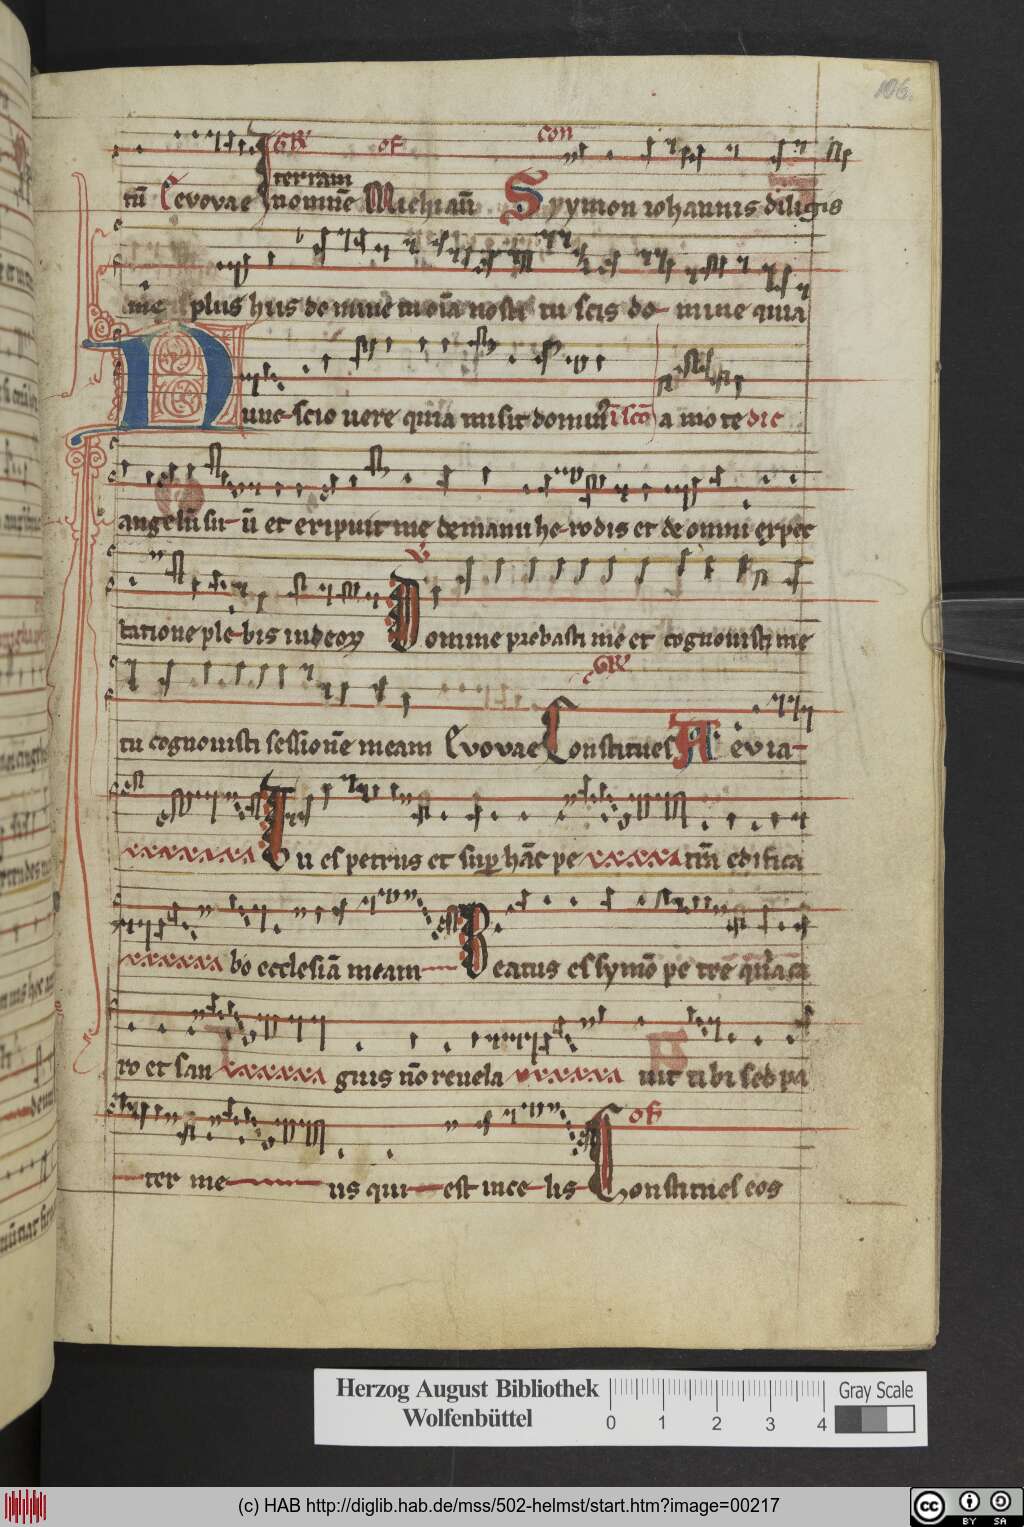 106.
GR of con
terram
tū Eevovae nomine Michiaū Symon iohannis diligis
me plus hiis domine tu oīa nosti tu scis do- mine quia
Nunc-scio vere quia misit domin' ī scō a mo te dic
angelū su- ū et eripuit me de manu he-rodis et de omni expec
tatione ple-bis iudeoꝝ V Domine probasti me et cognovisti me
GR
tu cognovisti sessionē meam Evovae Constitues A evia-
Tu es petrus et sup hāc pe trā edifica
bo ecclesiā meam Beatus es symō pe tre q̄a ca
ro et san guis nō revela vit tibi sed pa
of
ter me- us qui- est in ce-lis Constitues eos
Herzog August Bibliothek
Wolfenbüttel
0 1 2 3 4
Gray Scale
(c) HAB http://diglib.hab.de/mss/502-helmst/start.htm?image=00217
cc BY SA